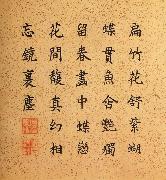 扁竹花舒紫
蝶貫魚含艷獨
留春畫中蝶戀
花間馥真幻相
忘鏡裏塵